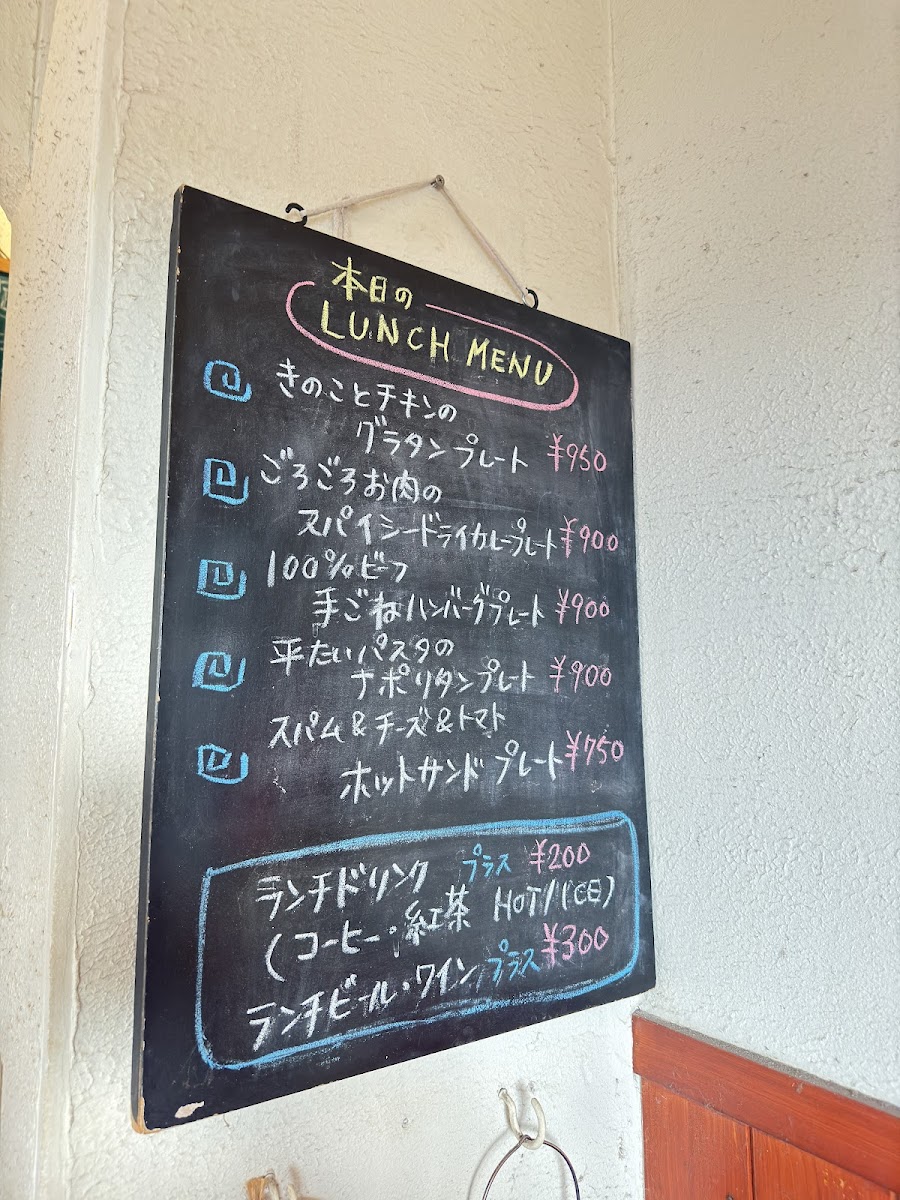 本日の
LUNCH MENU
きのことチキンの
グラタンプレート ¥950
ごろごろお肉の
スパイシードライカレープレート ¥900
100%ビーフ
手ごねハンバーグプレート ¥900
平たいパスタの
ナポリタンプレート ¥900
スパム&チーズ&トマト
ホットサンドプレート ¥750
ランチドリンク プラス ¥200
(コーヒー・紅茶 HOT/ICE)
ランチビール・ワイン プラス ¥300